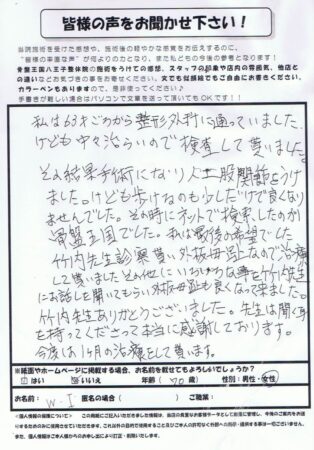 皆様の声をお聞かせ下さい！
当院施術を受けた感想や、施術後の軽やかな感覚をお伝えするのに、
"皆様の率直な声"が何よりの力となり、また私どもの今後の参考となります！
骨盤王国八王子整体院の施術をうけての感想、スタッフの印象や店内の雰囲気、他店と
の違いなどお気づきの事をお書きください。文でも似顔絵でもご自由にお書きください。
カラーペンもありますので、是非使ってください♪
手書きが難しい場合はパソコンで文章を送って頂いてもOKです！！
私は63才ごろから整形外科に通っていました。
けども中々治らないので検査して貰いました。
その結果手術になり人工股関節をうけ
ました。けども歩けるのも少しだけで良くなり
ませんでした。その時にネットで検索したのが
骨盤王国でした。私は最後の希望でした
竹内先生診察貰い外板母趾なので治療
して貰いましたその他にいろいろな事を竹内先生
にお話しを聞いてもらい外板母趾も良くなって来ました。
竹内先生ありがとうございました。先生は聞く耳
を持ってくださって本当に感謝しております。
今度は1ヶ月の治療をして貰います。
※紙面やホームページに掲載する場合、お名前を載せてもよろしいでしょうか？
はい いいえ 年齢（70歳） 性別：男性・女性
お名前： W-I 匿名の場合（ ） ご職業：
＜個人情報の保護について＞ この用紙にご記入いただきました情報は、当店の貴重なお客様データとして厳重に管理し、今後のご案内をお送り
するためのみに使用させていただきます。これ以外の目的で使用することおよびご本人の許可なく外部への開示・提供する事は一切ございませ
ん。また、個人情報はご本人様からのお申し出により訂正・削除いたします。